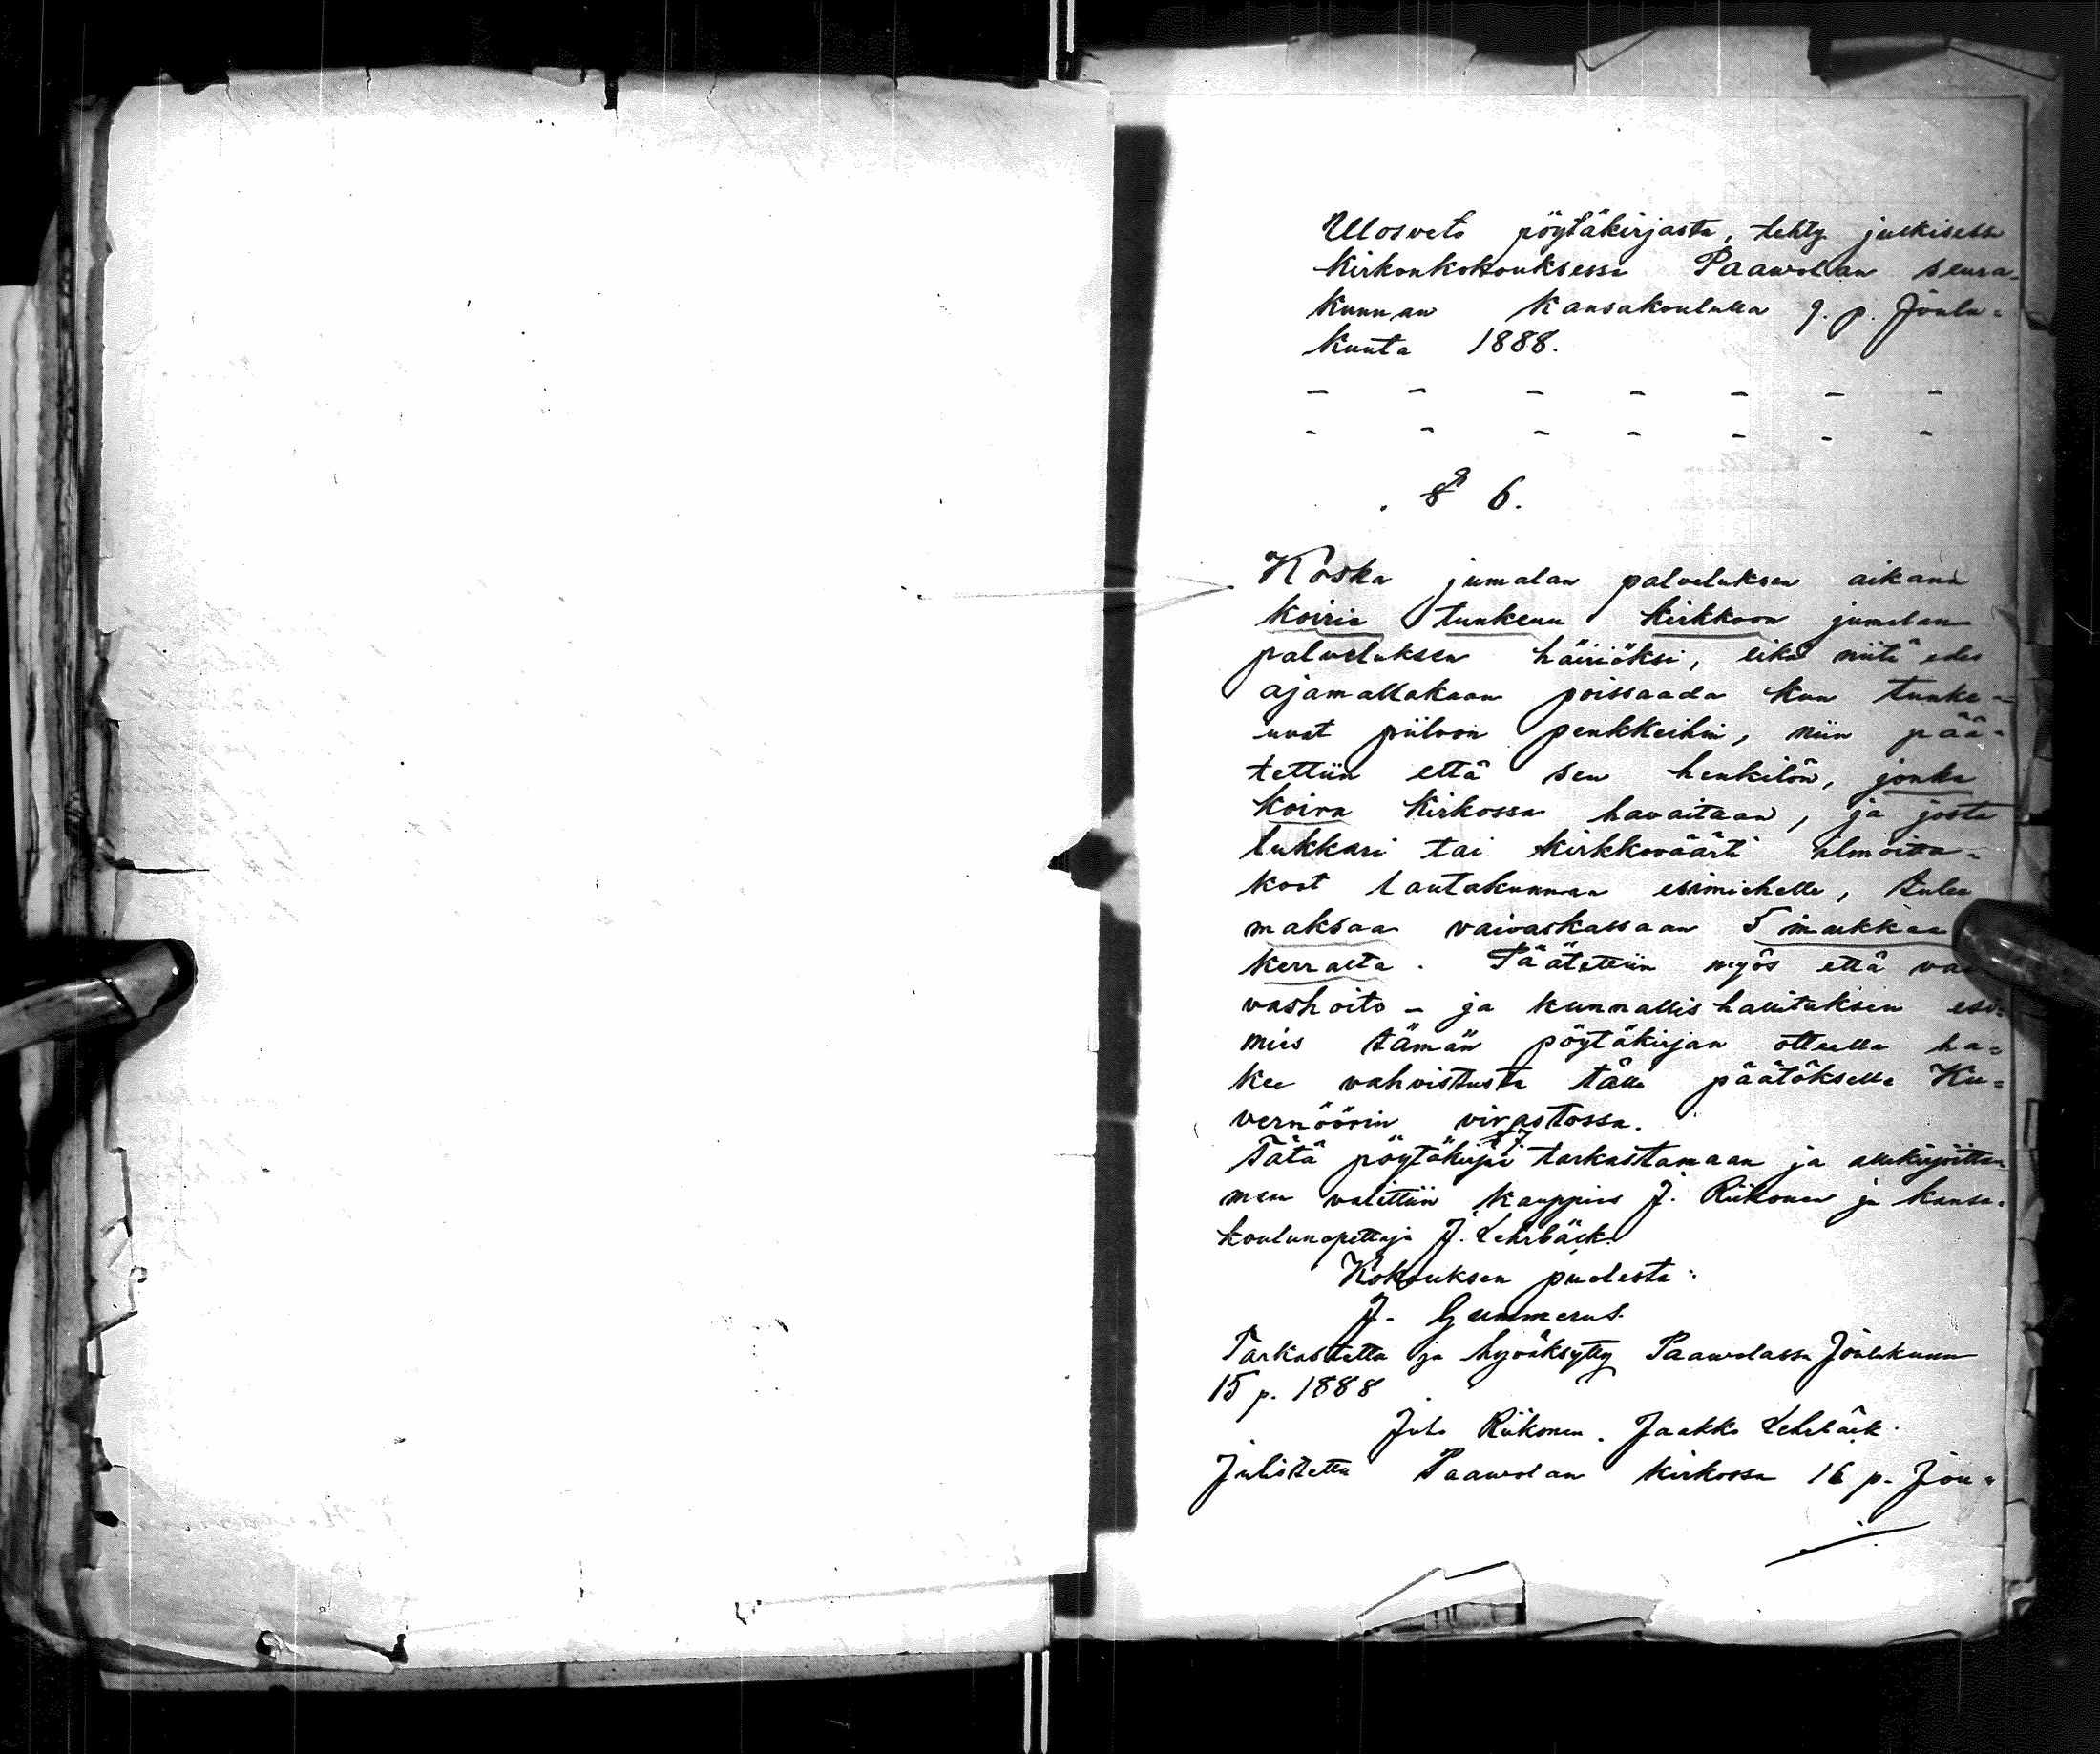 Ulosveto pöytäkirjasta, tehty julkisessa
kirkonkokouksessa Paawolan seura-
kunnan kansakoululla 9. p. Joulu-
kuuta 1888.
- - - - - - -
- - - - - - -
§ 6.
Koska jumalan palveluksen aikana
koiria tunkeuu kirkkoon jumalan
palveluksen häiriöksi, eikä niitä edes
ajamallakaan poissaada kun tunke-
uvat piiloon penkkeihin, niin pää-
tettiin että sen henkilön, jonka
koira kirkossa havaitaan, ja josta
lukkari tai kirkkoväärti ilmoitta-
koot lautakunnan esimiehelle, tulee
maksaa vaivaskassaan 5 markkaa
kerralta. Päätettiin myös että vai
vashoito - ja kunnallishallituksen esi-
mies tämän pöytäkirjan otteella ha-
kee vahvistusta tälle päätökselle Ku-
vernöörin virastossa.
Tätä pöytäkirjaa tarkastamaan ja allekirjoitta-
maan valittiin kauppias J. Riikonen ja kansa-
koulunopettaja J. Lehrbäck.
Kokouksen puolesta:
J. Gummerus.
Tarkastettu ja hyväksytty Paawolassa Joulukuun
15 p. 1888
Juho Riikonen. Jaakko Lehrbäck.
Julistettu Paawolan kirkossa 16 p. Jou-